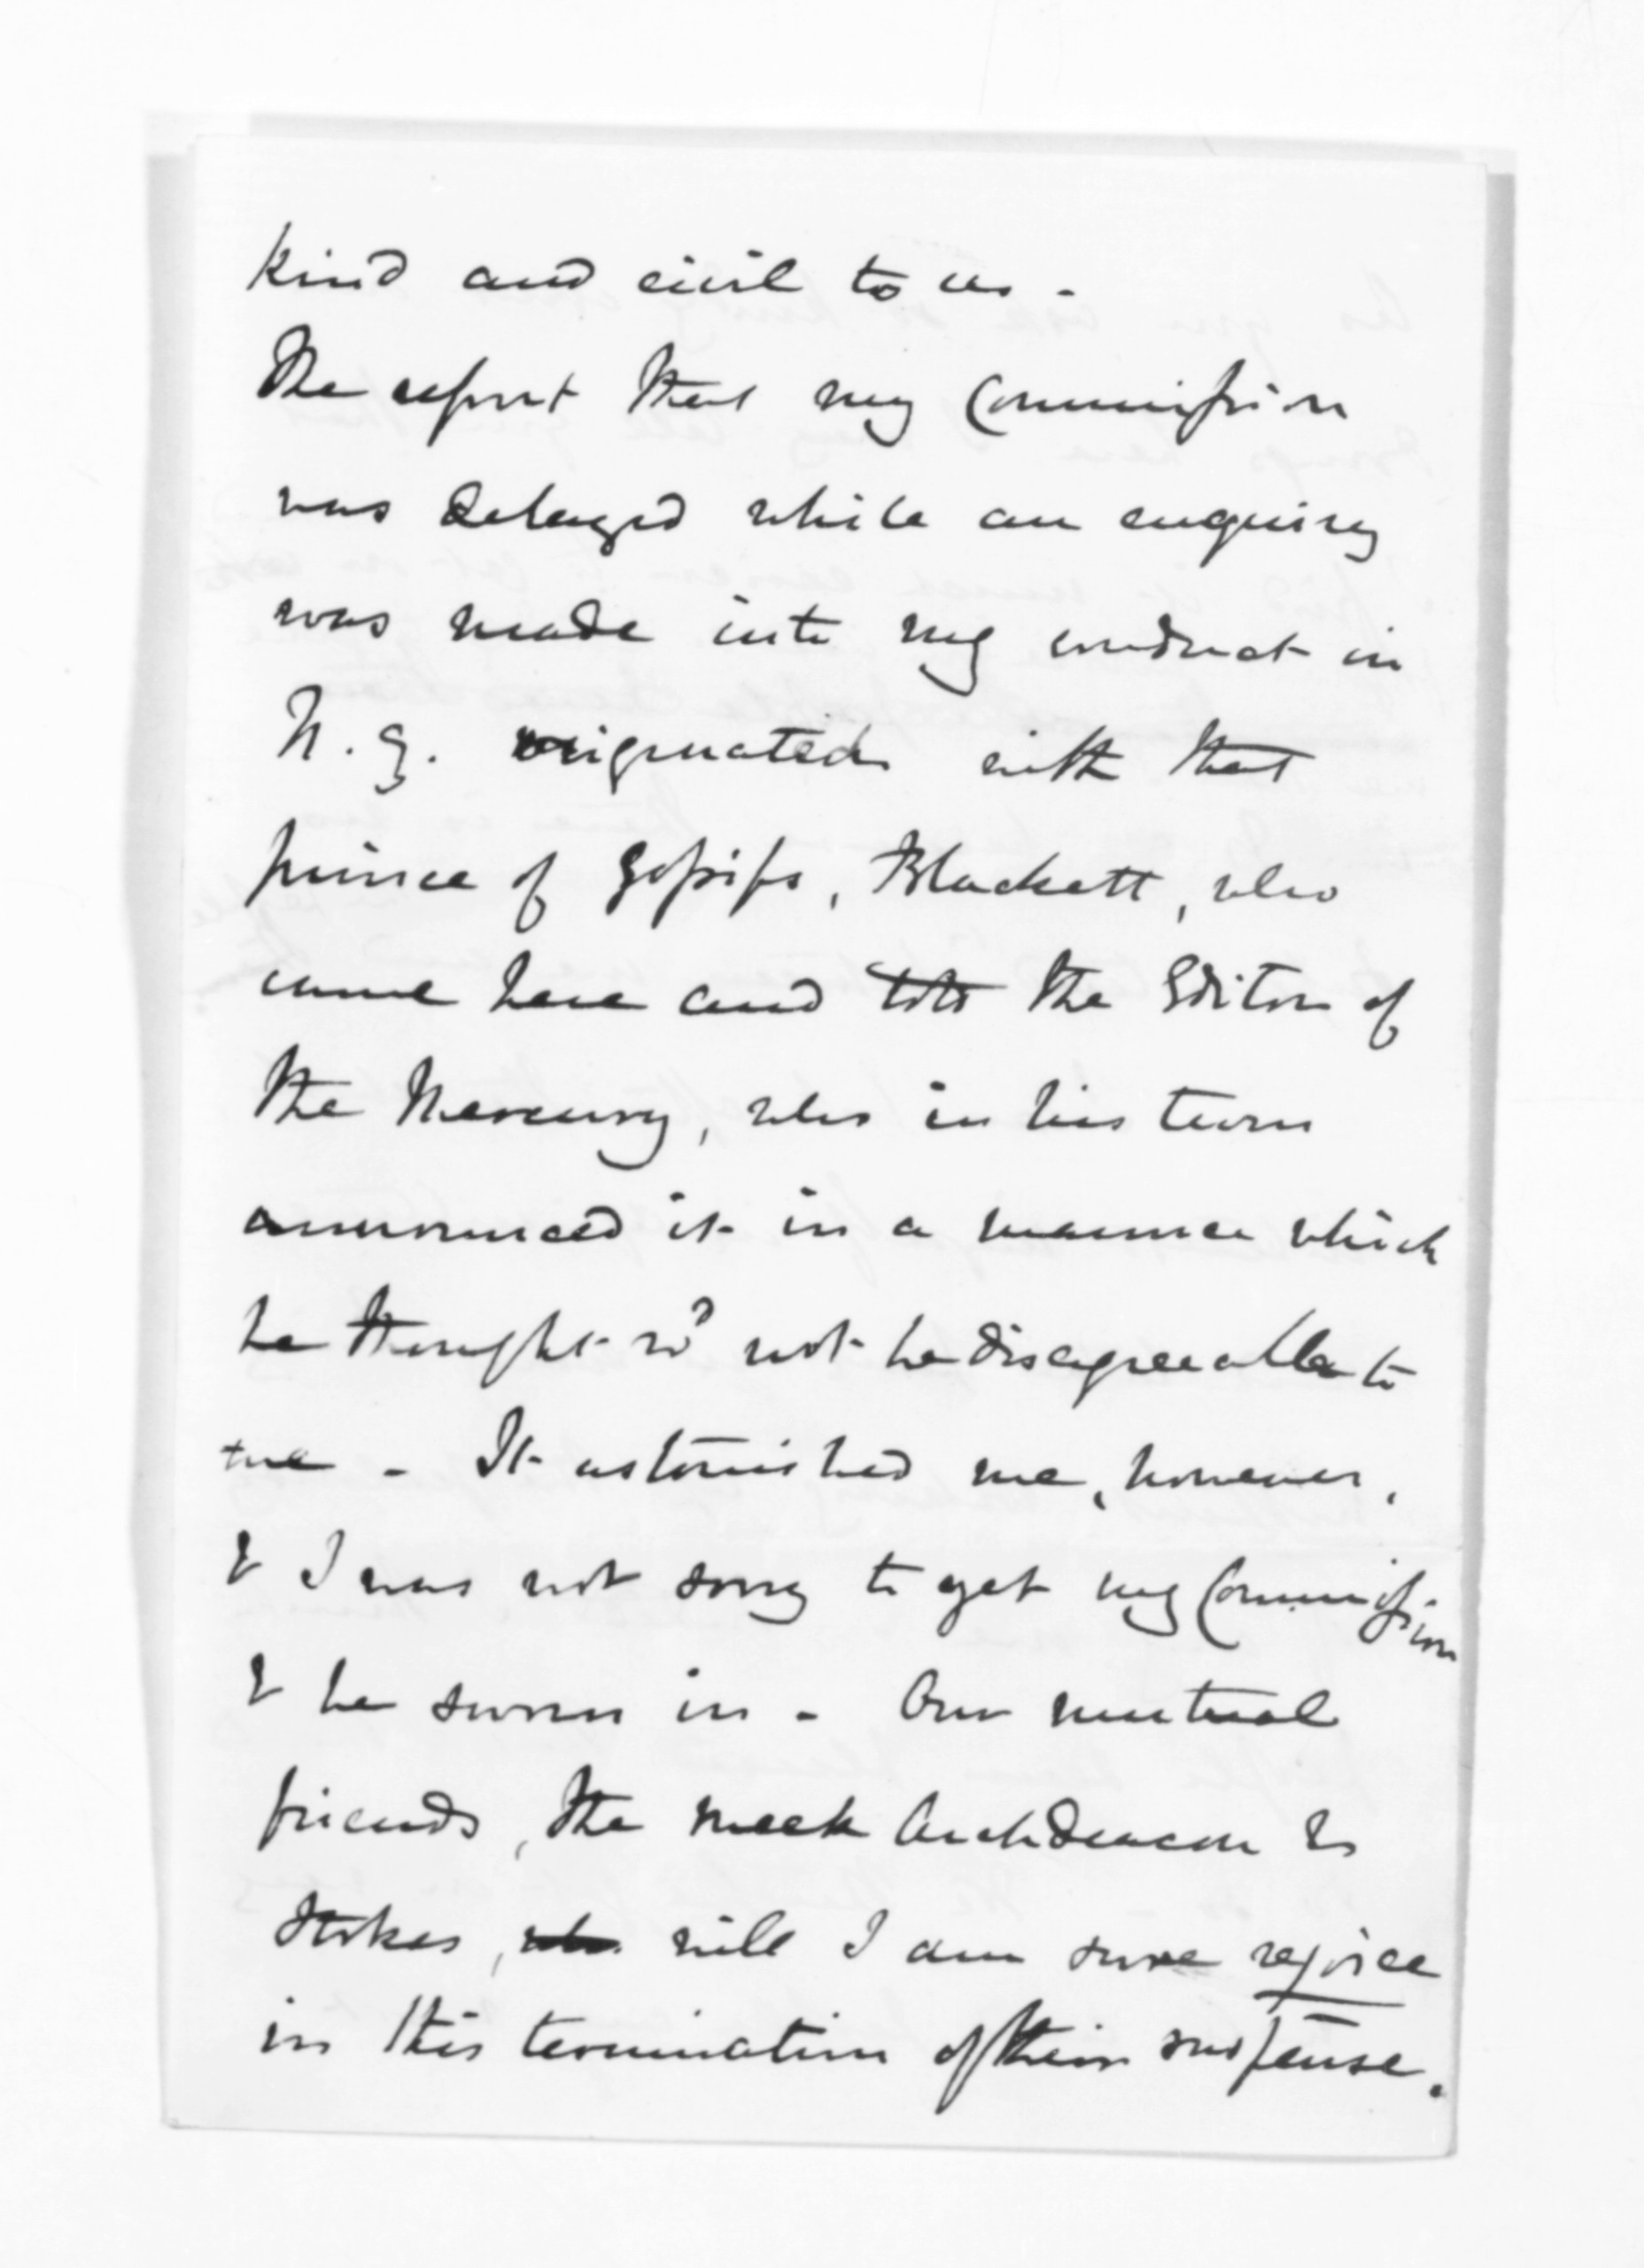 kind and civil to us -
The report that my Commission
was delayed while an enquiry
was made into my conduct in
N. Z. originated with that
prince of Gossips, Blackett, who
came here and told the Editor of
the Mercury, who in his turn
announced it in a manner which
he thought wd not be disagreeable to
me - It astonished me, however,
& I was not sorry to get my Commission
& be sworn in - Our mutual
friends, the meek Archdeacon &
Stokes, will I am sure rejoice
in this termination of their suspense.